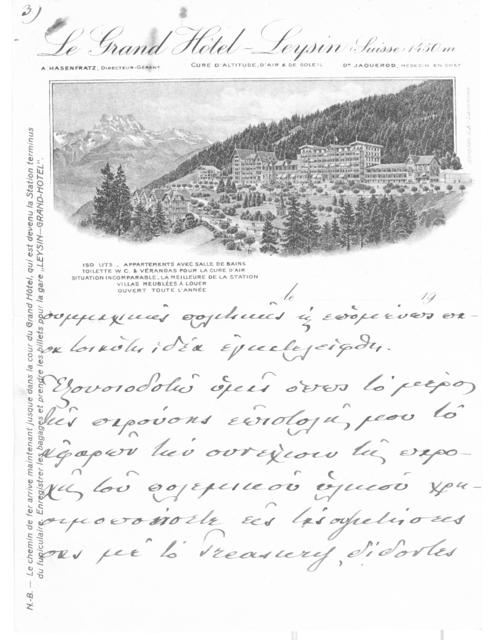 3)
Le Grand Hôtel - Leysin (Suisse 1450 m
A. HASENFRATZ, DIRECTEUR-GÉRANT
CURE D'ALTITUDE, D'AIR & DE SOLEIL
Dr JAQUEROD, MÉDECIN EN CHEF
150 LITS _ APPARTEMENTS AVEC SALLE DE BAINS
TOILETTE W.C. & VÉRANDAS POUR LA CURE D'AIR
SITUATION INCOMPARABLE, LA MEILLEURE DE LA STATION
VILLAS MEUBLÉES À LOUER
OUVERT TOUTE L'ANNÉE
N.-B. — Le chemin de fer arrive maintenant jusque dans la cour du Grand Hôtel, qui est devenu la Station terminus
du funiculaire. Enregistrer les bagages et prendre les billets pour la gare „LEYSIN-GRAND-HOTEL".
le 19
συμμαχικῆς πολιτικῆς ἡ ἑπομένως
ἰδέα ἐγκατελείφθη.
Ἐξουσιοδοτῶ ὑμᾶς ὅπως τὸ μέρος
τῆς παρούσης ἐπιστολῆς μου τὸ
ἀφορῶν τὴν συνέχισιν τῆς παρο-
χῆς τοῦ πολεμικοῦ ὑλικοῦ χρη-
σιμοποιήσητε εἰς τὰς συζητήσεις
σας μὲ τὸ Treasury, δίδοντες